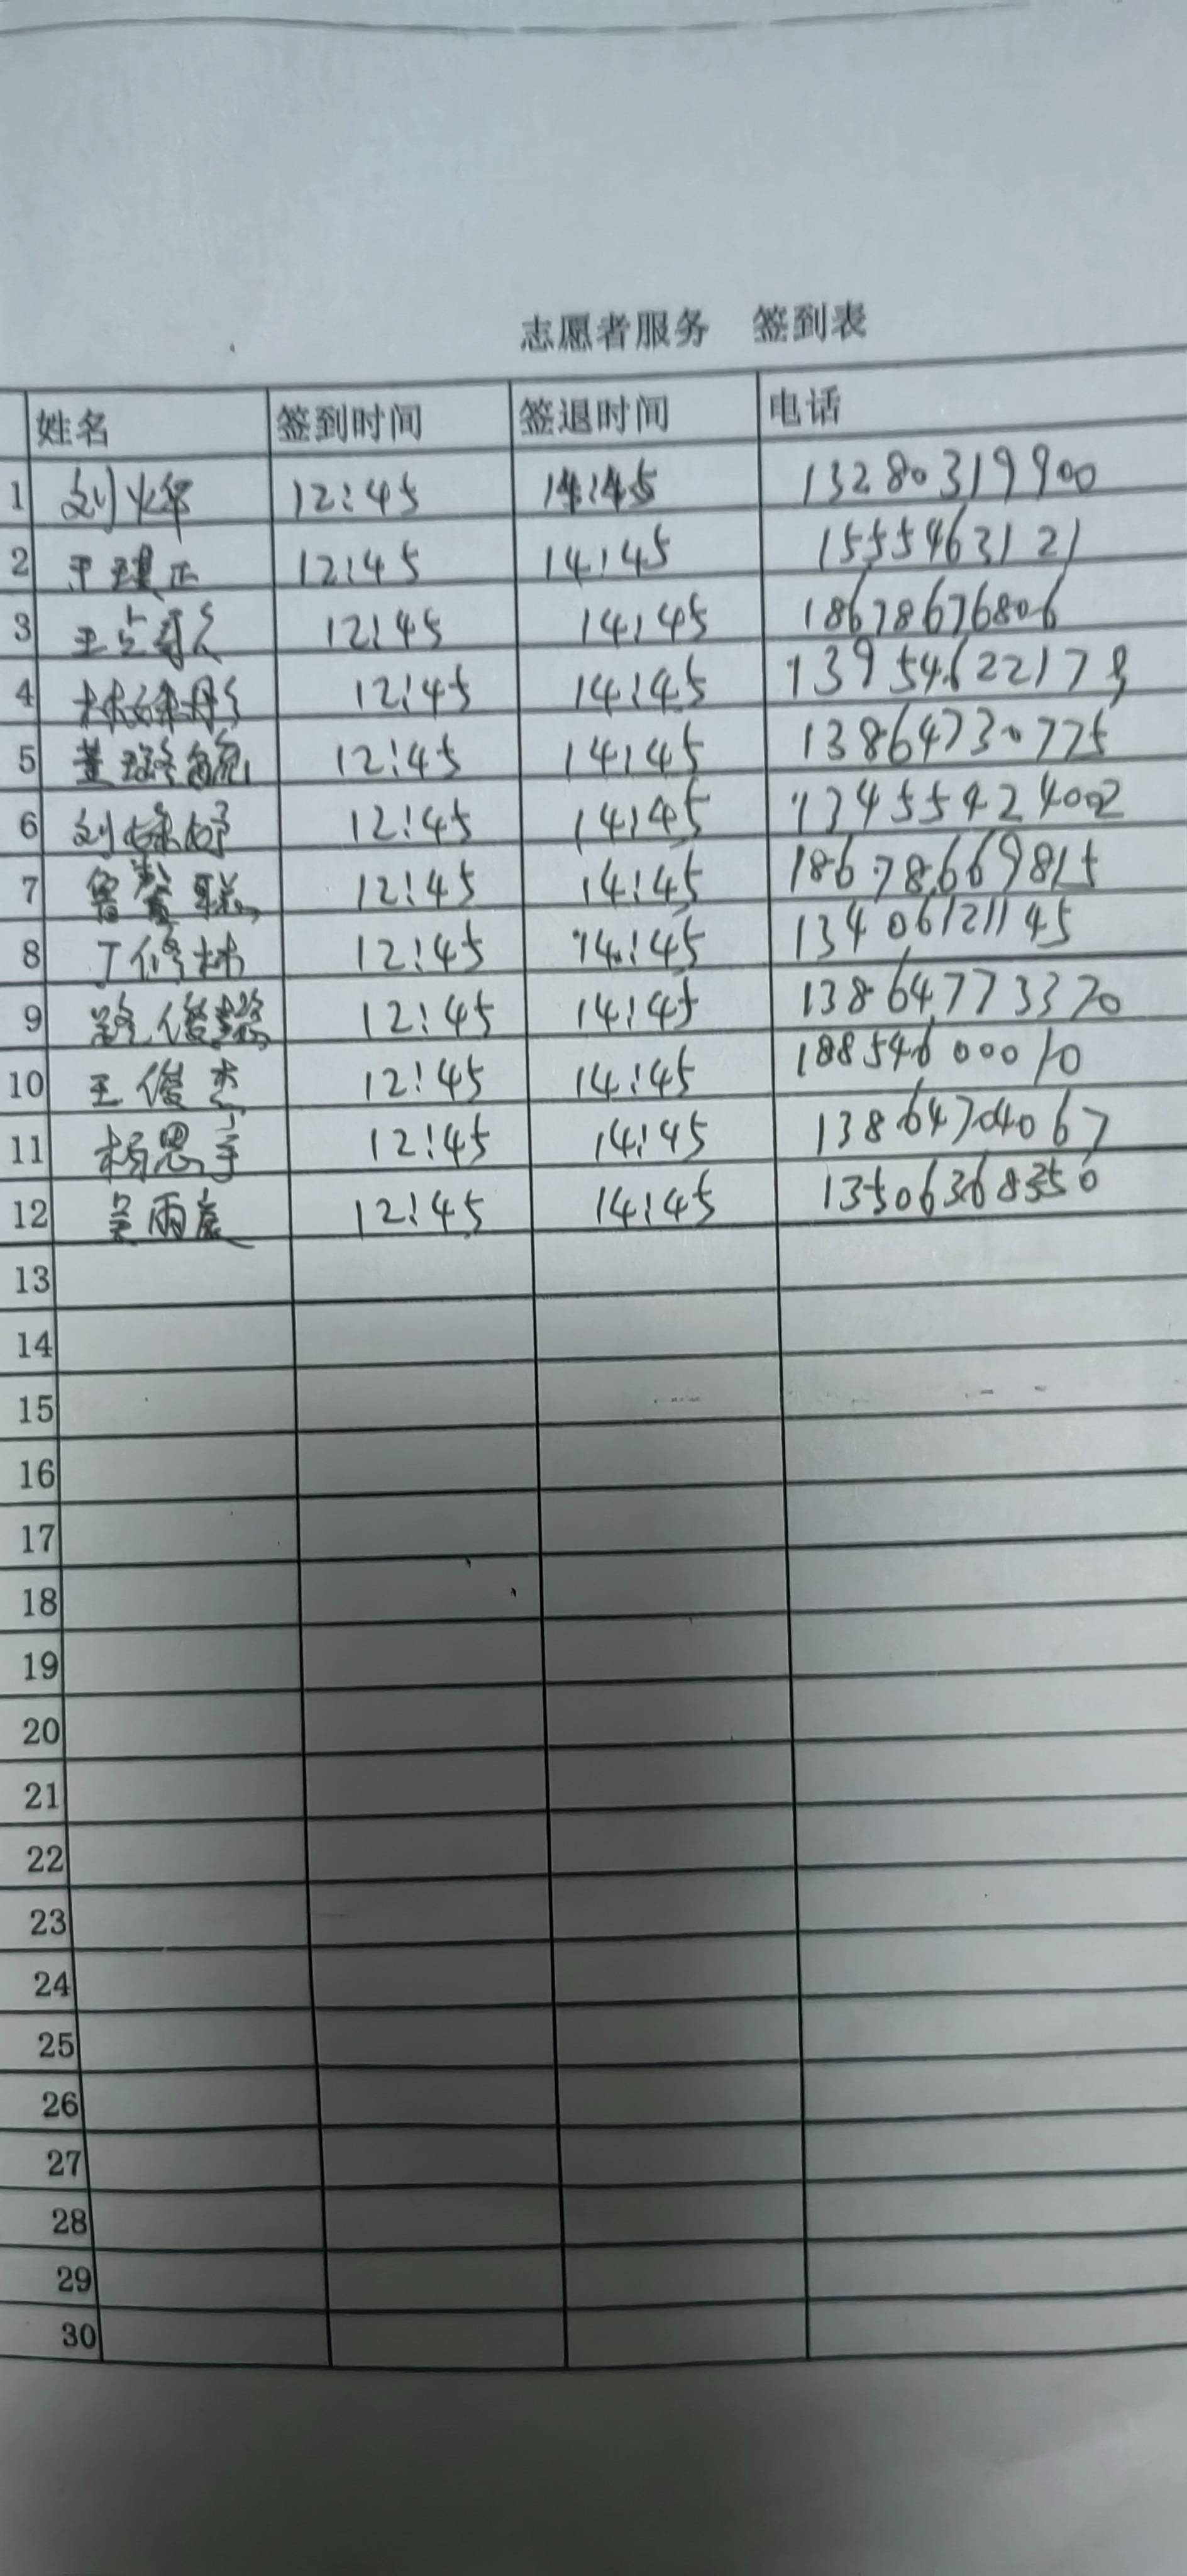 志愿者服务 签到表
姓名 签到时间 签退时间 电话
1 刘烨 12:45 14:45 13280319900
2 王璟正 12:45 14:45 1555463121
3 王 12:45 14:45 18678676806
4 林 12:45 14:45 13954622173
5 董璐 12:45 14:45 13864730775
6 刘 12:45 14:45 13455424002
7 鲁 12:45 14:45 18678669815
8 丁修林 12:45 14:45 13406121145
9 路俊懿 12:45 14:45 13864773370
10 王俊杰 12:45 14:45 18854600010
11 杨恩宇 12:45 14:45 13864704067
12 吴雨宸 12:45 14:45 13506368350
13
14
15
16
17
18
19
20
21
22
23
24
25
26
27
28
29
30